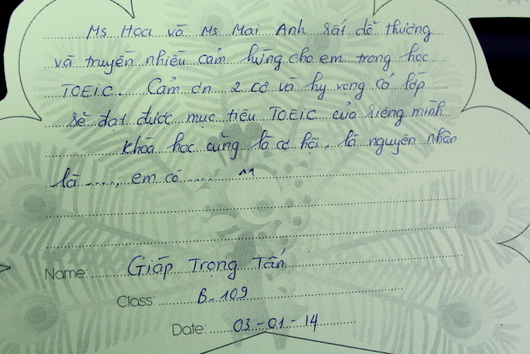 Ms Hoa và Ms Mai Anh rất dễ thương
và truyền nhiều cảm hứng cho em trong học
TOEIC. Cảm ơn 2 cô và hy vọng cả lớp
sẽ đạt được mục tiêu TOEIC của riêng mình
Khóa học cũng là cơ hội, là nguyên nhân
là ....., em có ..... ^^
Name: Giáp Trọng Tấn
Class: B-109
Date: 03-01-14